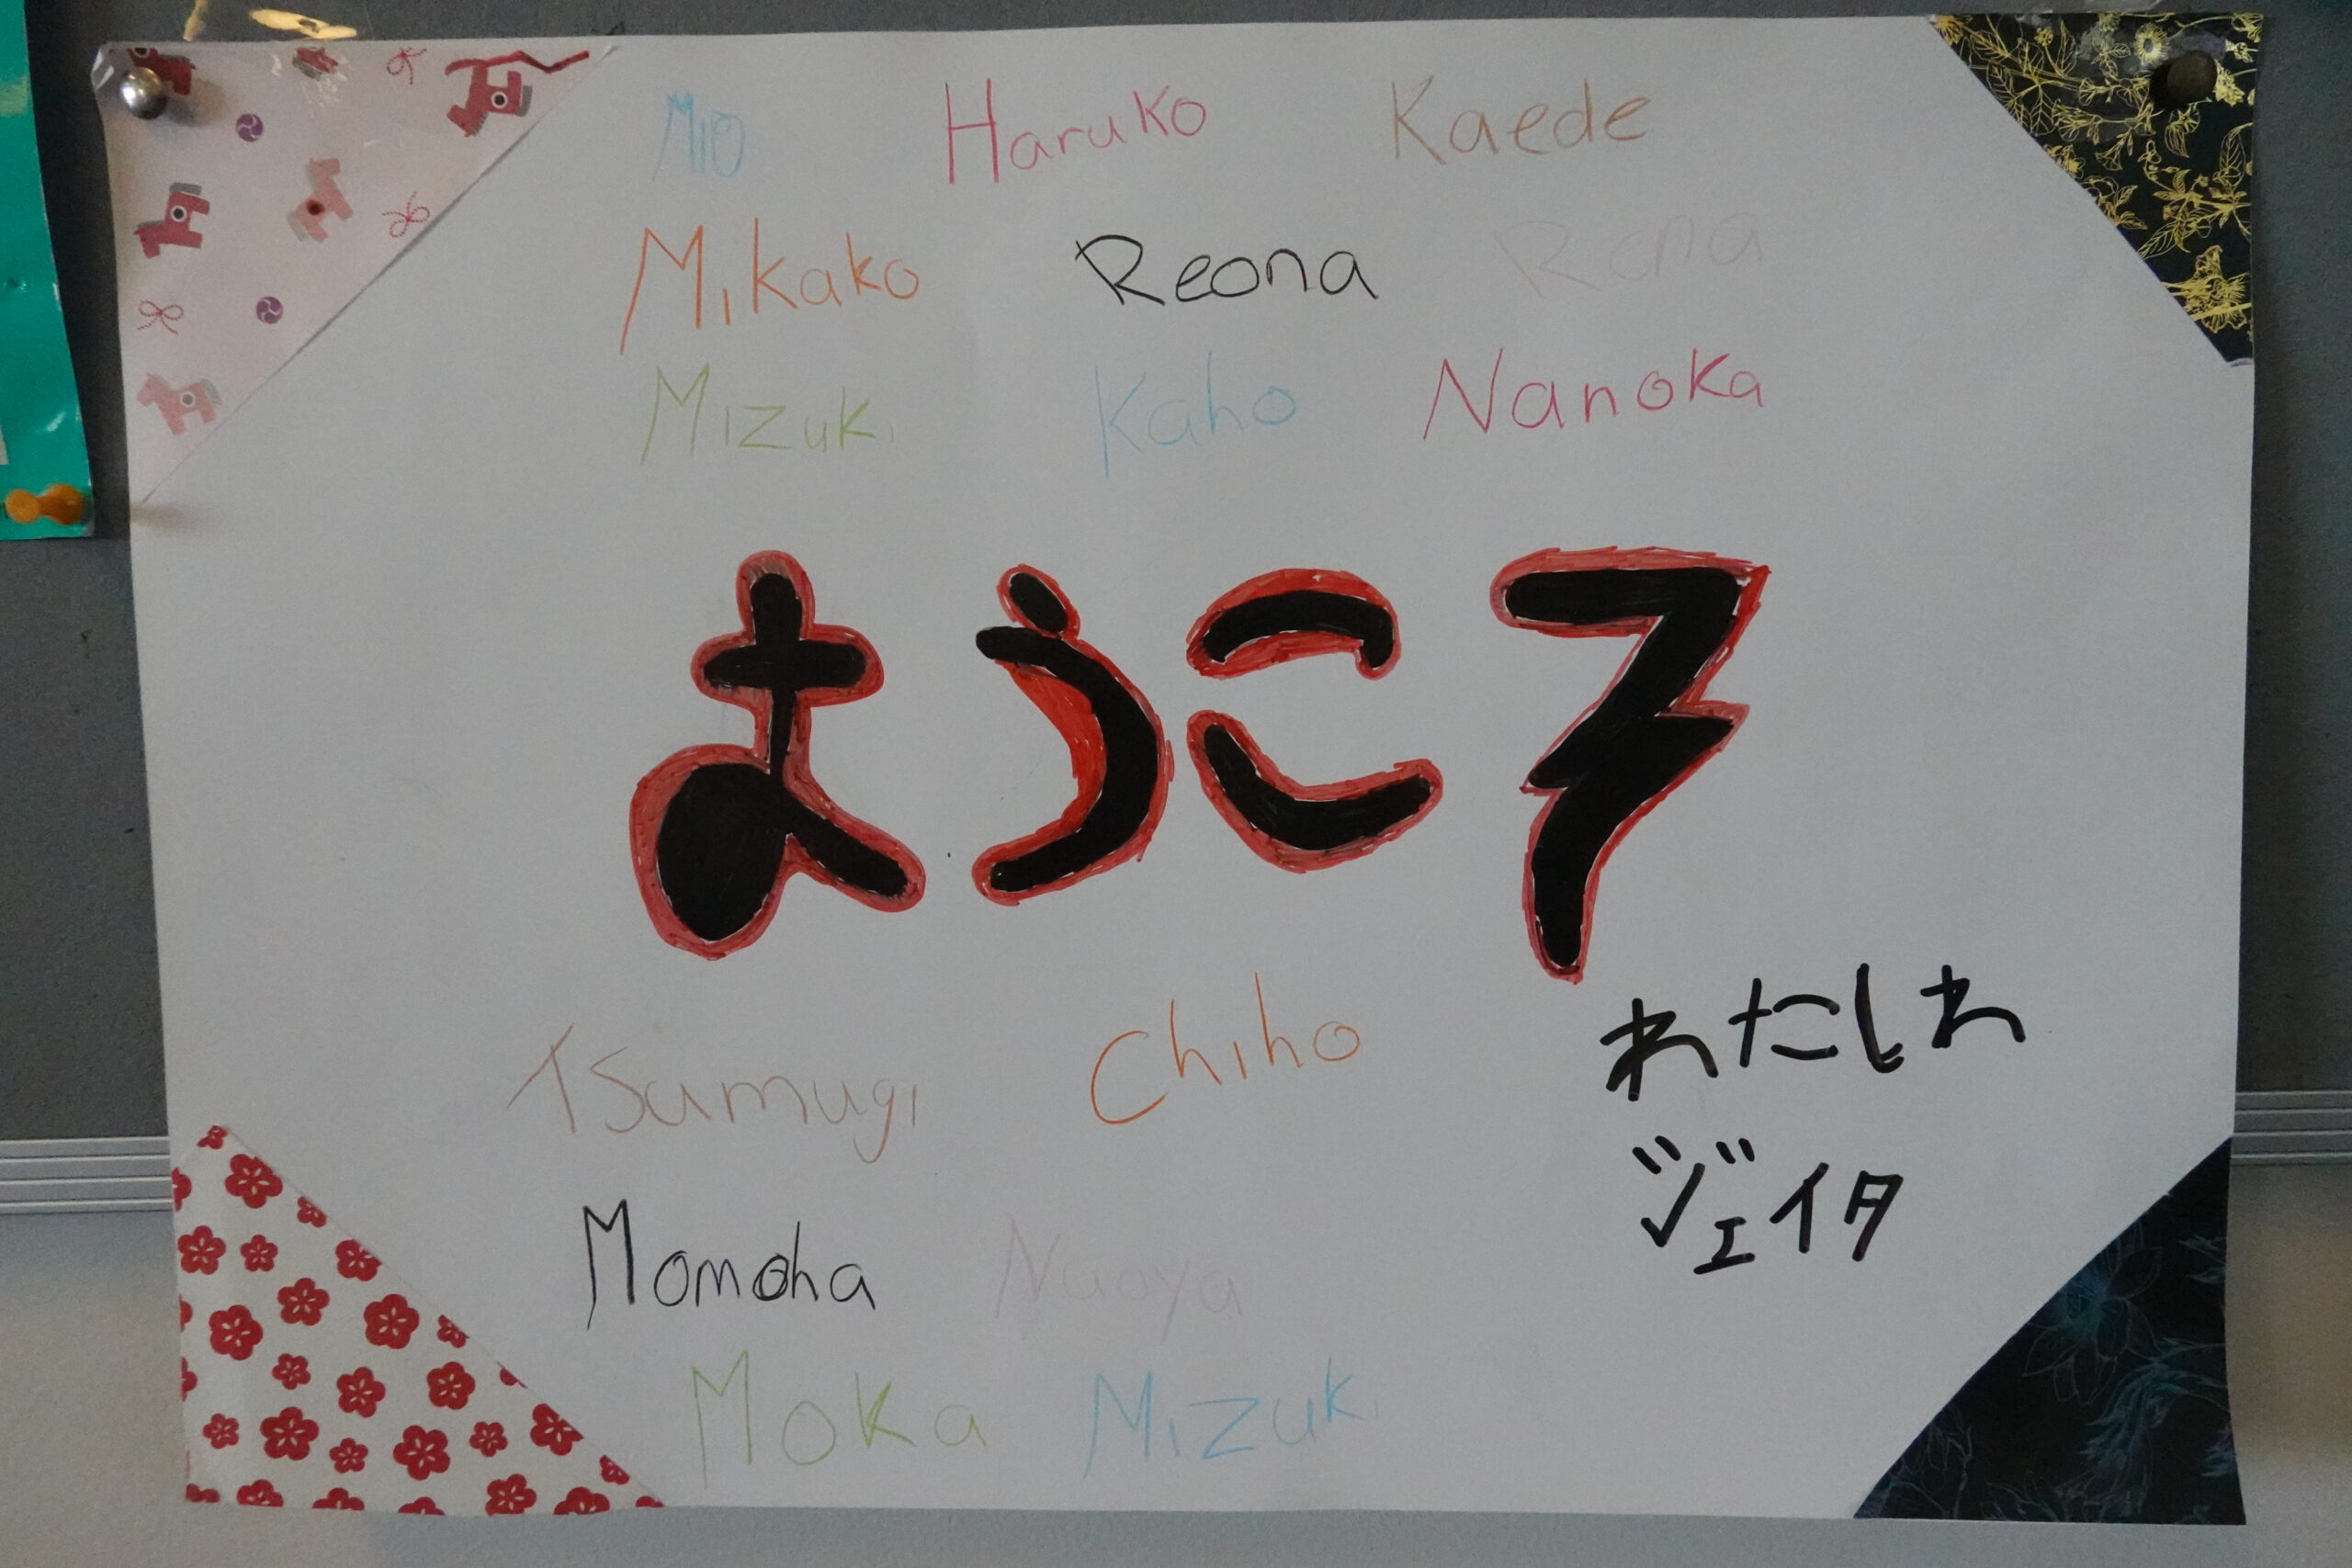 Mio Haruko Kaede
Mikako Reona Rena
Mizuki Kaho Nanoka
ようこそ
Tsumugi Chiho
わたしわ
ジェイタ
Momoha Naoya
Moka Mizuki